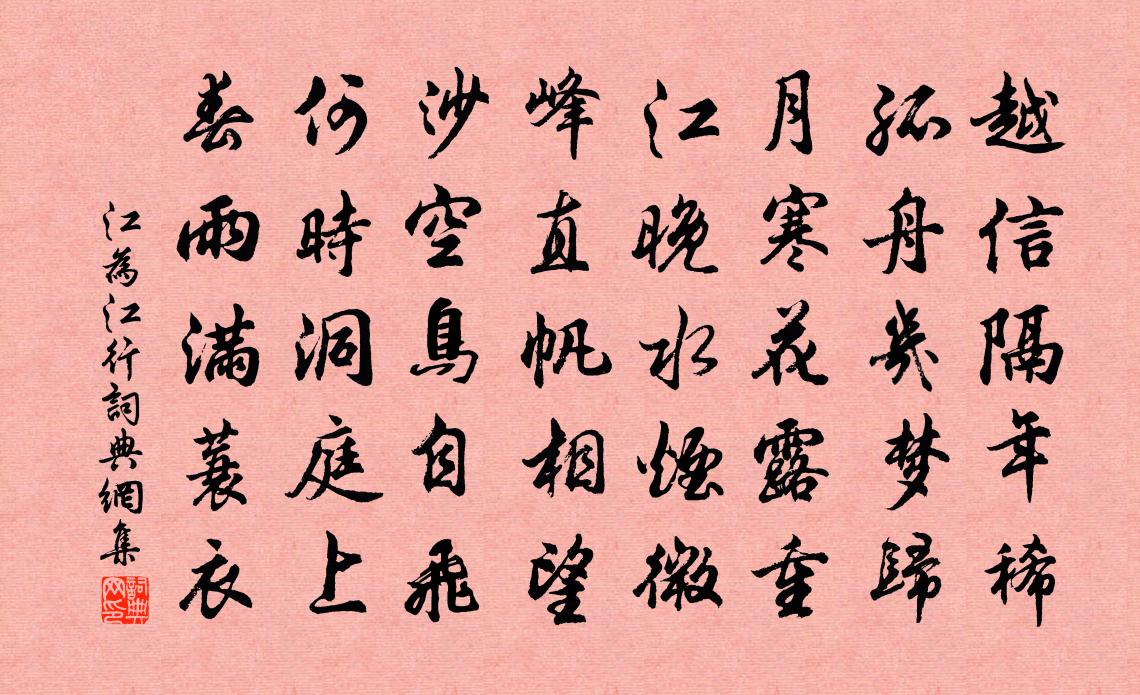 越信隔年稀
孤舟幾梦歸
月寒花露重
江晚水煙微
峰直帆相望
沙空鳥自飛
何時洞庭上
春雨滿蓑衣
江為江行詞典網集
詞典网印